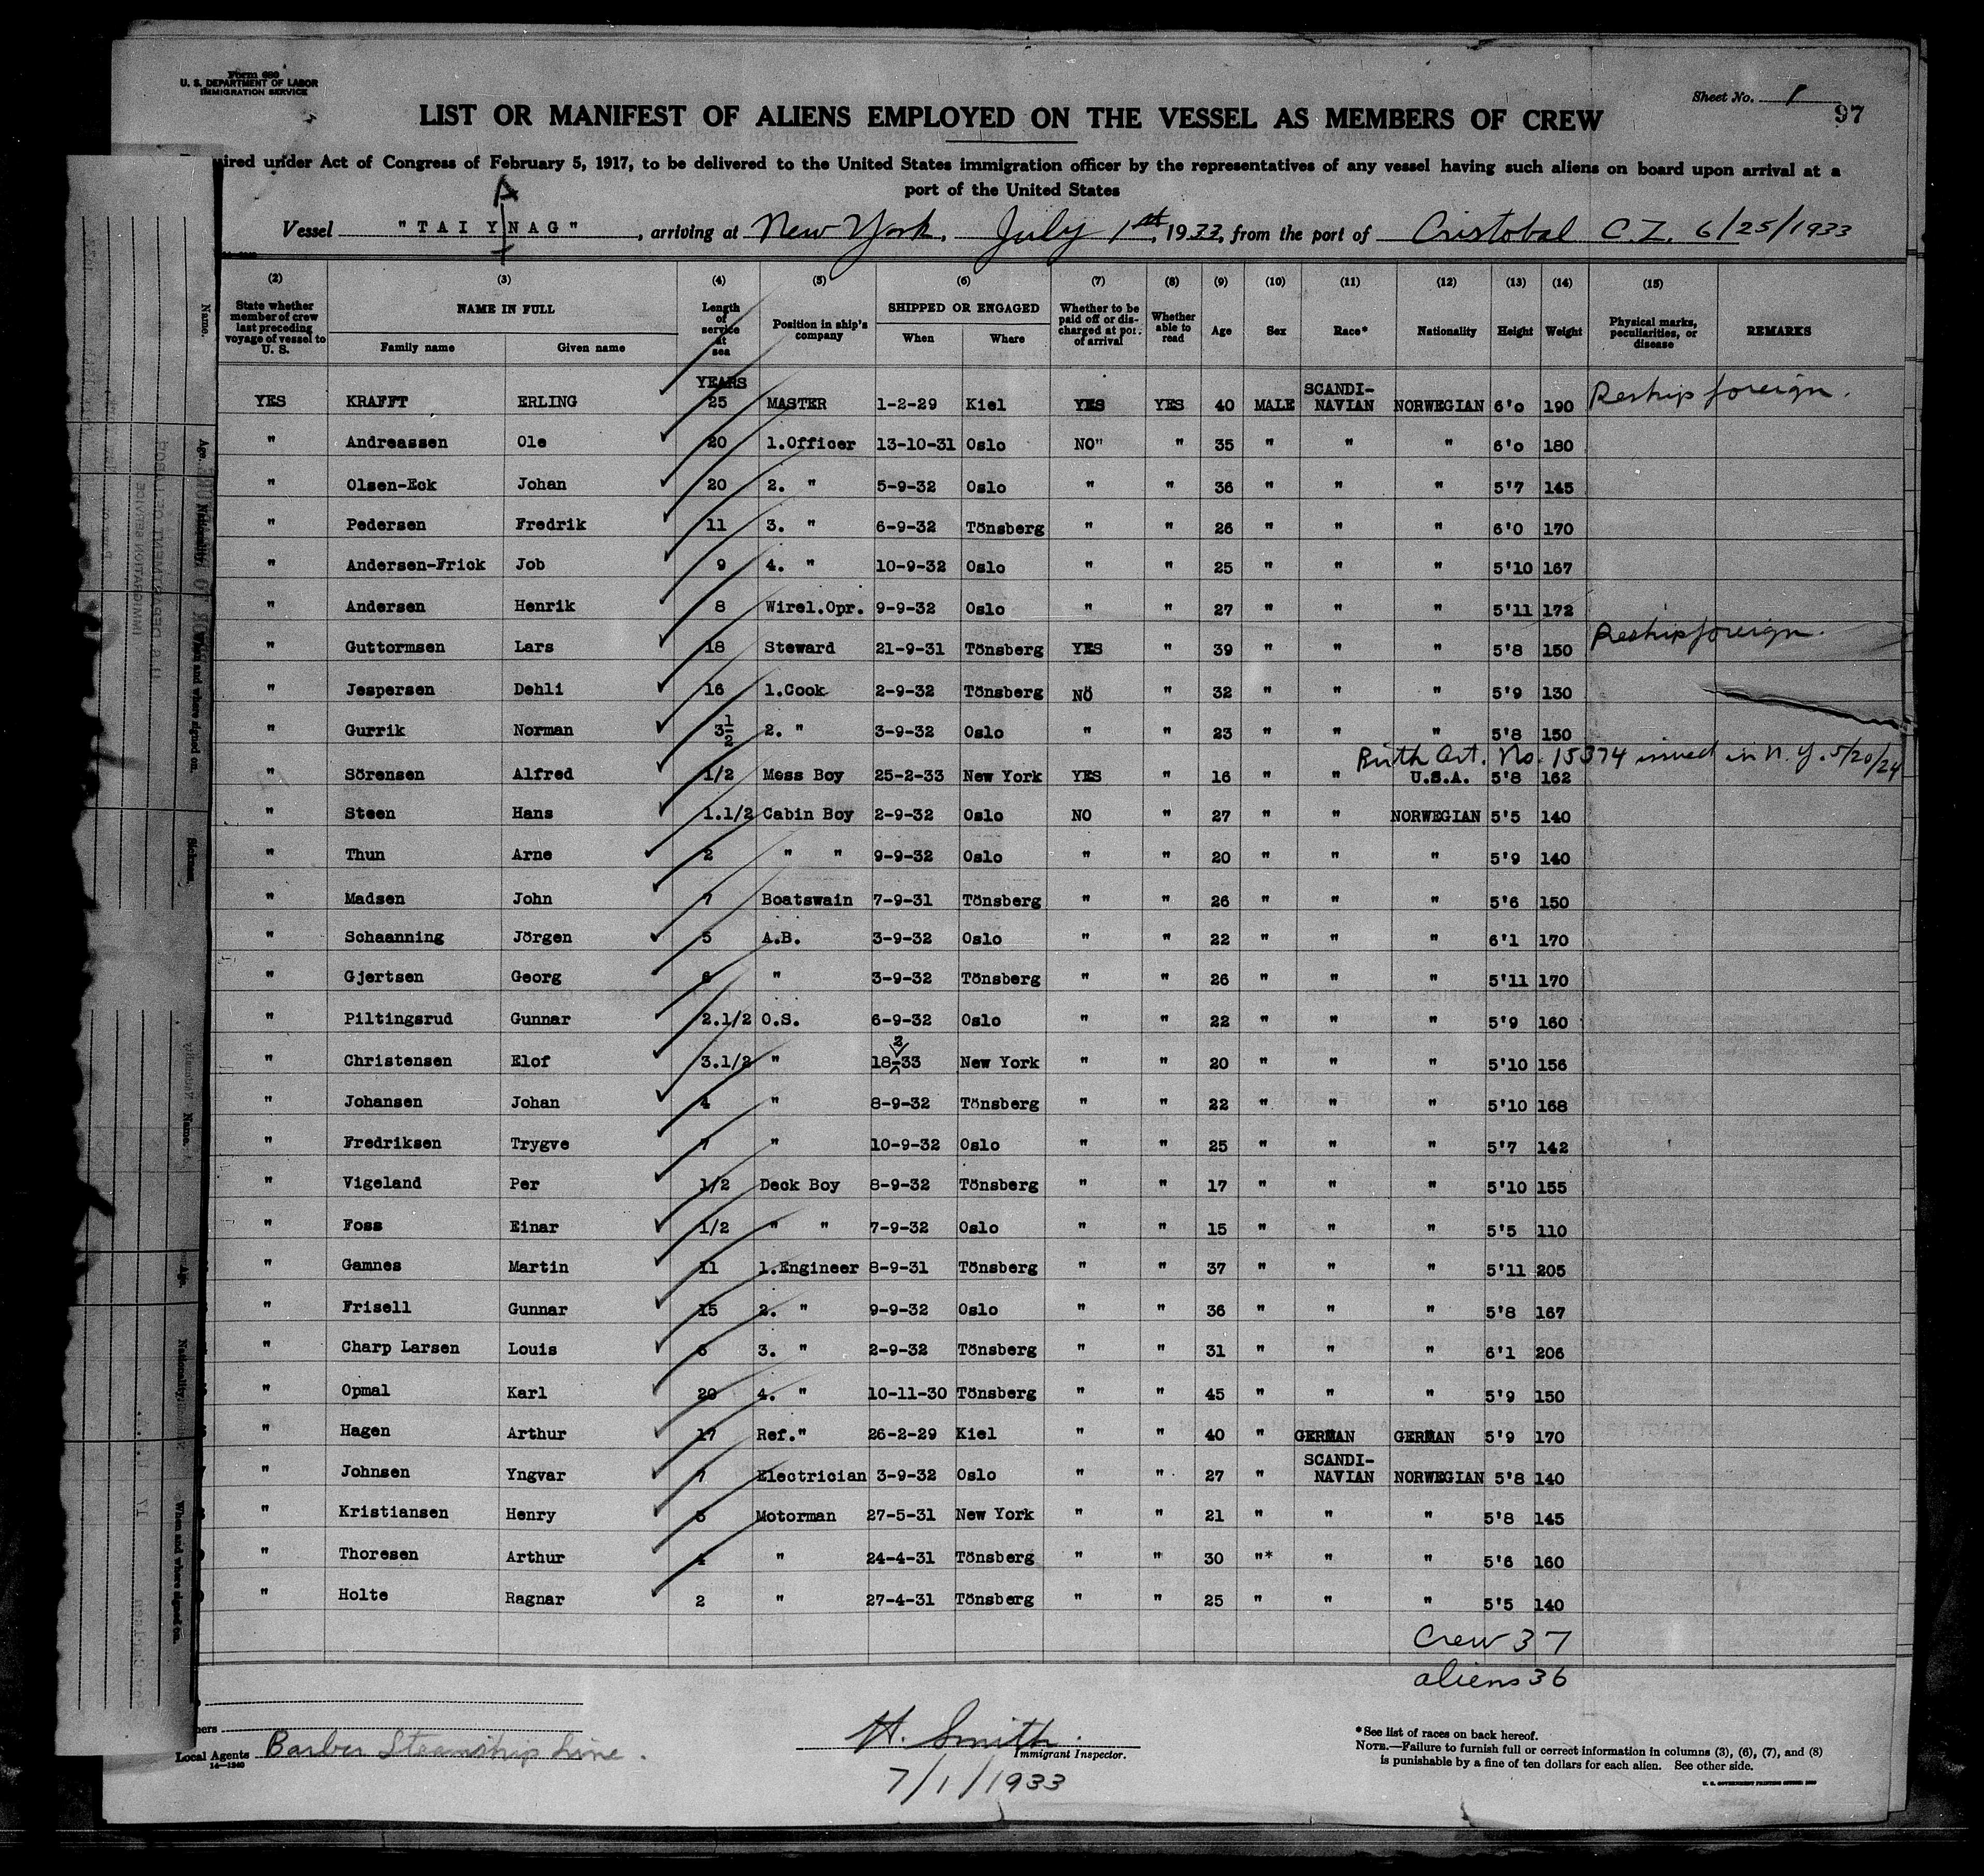 Form 680
U. S. DEPARTMENT OF LABOR
IMMIGRATION SERVICE
Sheet No. 1
97
LIST OR MANIFEST OF ALIENS EMPLOYED ON THE VESSEL AS MEMBERS OF CREW
uired under Act of Congress of February 5, 1917, to be delivered to the United States immigration officer by the representatives of any vessel having such aliens on board upon arrival at a
port of the United States
A
Vessel "TAI YNAG", arriving at New York, July 1st, 1933, from the port of Cristobal C.Z. 6/25/1933
(2) (3) (4) (5) (6) (7) (8) (9) (10) (11) (12) (13) (14) (15)
State whether member of crew last preceding voyage of vessel to U. S. NAME IN FULL Family name Given name Length of service at sea Position in ship's company SHIPPED OR ENGAGED When Where Whether to be paid off or discharged at port of arrival Whether able to read Age Sex Race* Nationality Height Weight Physical marks, peculiarities, or disease REMARKS
YEARS SCANDI-
YES KRAFFT ERLING 25 MASTER 1-2-29 Kiel YES YES 40 MALE NAVIAN NORWEGIAN 6'0 190 Reship foreign.
" Andreassen Ole 20 1.Officer 13-10-31 Oslo NO" " 35 " " " 6'0 180
" Olsen-Eck Johan 20 2. " 5-9-32 Oslo " " 36 " " " 5'7 145
" Pedersen Fredrik 11 3. " 6-9-32 Tönsberg " " 26 " " " 6'0 170
" Andersen-Frick Job 9 4. " 10-9-32 Oslo " " 25 " " " 5'10 167
" Andersen Henrik 8 Wirel.Opr. 9-9-32 Oslo " " 27 " " " 5'11 172
" Guttormsen Lars 18 Steward 21-9-31 Tönsberg YES " 39 " " " 5'8 150 Reship foreign.
" Jespersen Dehli 16 1.Cook 2-9-32 Tönsberg NÖ " 32 " " " 5'9 130
" Gurrik Norman 3 1/2 2. " 3-9-32 Oslo " " 23 " " " 5'8 150
Birth Cert. No. 15374 issued in N.Y. 5/20/24
" Sörensen Alfred 1/2 Mess Boy 25-2-33 New York YES " 16 " " U.S.A. 5'8 162
" Steen Hans 1.1/2 Cabin Boy 2-9-32 Oslo NO " 27 " " NORWEGIAN 5'5 140
" Thun Arne 2 " " 9-9-32 Oslo " " 20 " " " 5'9 140
" Madsen John 7 Boatswain 7-9-31 Tönsberg " " 26 " " " 5'6 150
" Schaanning Jörgen 5 A.B. 3-9-32 Oslo " " 22 " " " 6'1 170
" Gjertsen Georg 6 " 3-9-32 Tönsberg " " 26 " " " 5'11 170
" Piltingsrud Gunnar 2.1/2 O.S. 6-9-32 Oslo " " 22 " " " 5'9 160
2
" Christensen Elof 3.1/2 " 18-33 New York " " 20 " " " 5'10 156
" Johansen Johan 4 " 8-9-32 Tönsberg " " 22 " " " 5'10 168
" Fredriksen Trygve 7 " 10-9-32 Oslo " " 25 " " " 5'7 142
" Vigeland Per 1/2 Deck Boy 8-9-32 Tönsberg " " 17 " " " 5'10 155
" Foss Einar 1/2 " " 7-9-32 Oslo " " 15 " " " 5'5 110
" Gamnes Martin 11 1.Engineer 8-9-31 Tönsberg " " 37 " " " 5'11 205
" Frisell Gunnar 15 2. " 9-9-32 Oslo " " 36 " " " 5'8 167
" Charp Larsen Louis 6 3. " 2-9-32 Tönsberg " " 31 " " " 6'1 206
" Opmal Karl 20 4. " 10-11-30 Tönsberg " " 45 " " " 5'9 150
" Hagen Arthur 17 Ref." 26-2-29 Kiel " " 40 " GERMAN GERMAN 5'9 170
SCANDI-
" Johnsen Yngvar 7 Electrician 3-9-32 Oslo " " 27 " NAVIAN NORWEGIAN 5'8 140
" Kristiansen Henry 5 Motorman 27-5-31 New York " " 21 " " " 5'8 145
" Thoresen Arthur 4 " 24-4-31 Tönsberg " " 30 "* " " 5'6 160
" Holte Ragnar 2 " 27-4-31 Tönsberg " " 25 " " " 5'5 140
Crew 37
aliens 36
Local Agents Barber Steamship Line.
14—1240
H. Smith
Immigrant Inspector.
7/1/1933
*See list of races on back hereof.
NOTE.—Failure to furnish full or correct information in columns (3), (6), (7), and (8)
is punishable by a fine of ten dollars for each alien. See other side.
U. S. GOVERNMENT PRINTING OFFICE